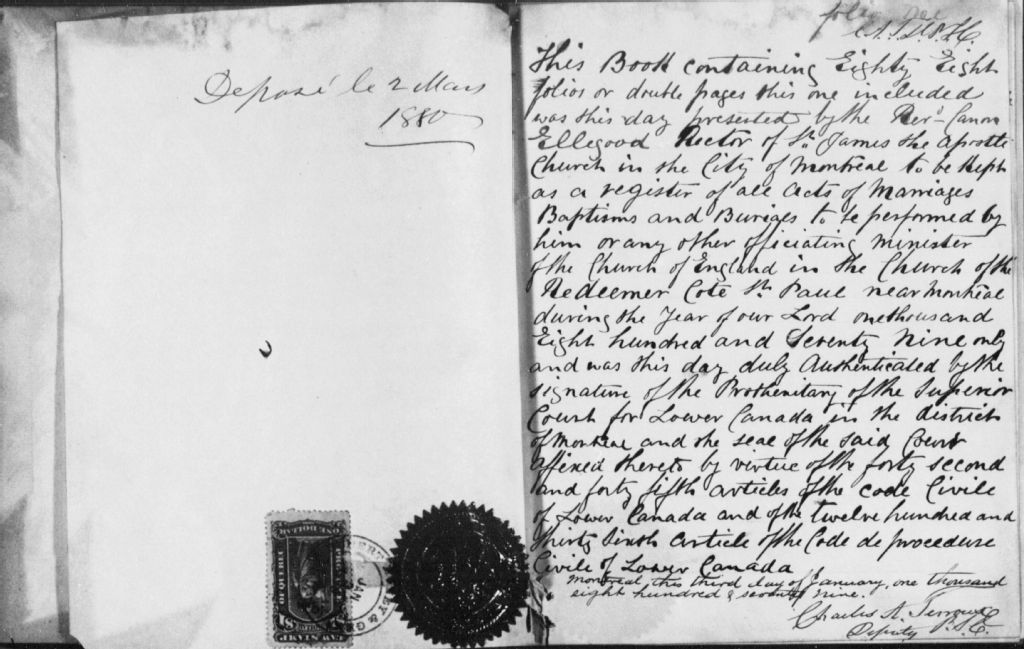 Deposé le 2 Mars
1880
folio one
This Book containing Eighty Eight
folios or double pages this one included
was this day presented by the Revd. Canon
Ellegood Rector of St. James the Apostle
Church in the City of Montreal to be kept
as a register of all acts of Marriages
Baptisms and Burials to be performed by
him or any other officiating minister
of the Church of England in the Church of the
Redeemer Cote St. Paul near Montreal
during the Year of our Lord one thousand
Eight hundred and Seventy Nine only
and was this day duly Authenticated by the
signature of the Prothonitary of the Superior
Court for Lower Canada in the district
of Montreal and the seal of the said Court
affixed thereto by virtue of the forty second
and forty fifth articles of the code Civile
of Lower Canada and of the twelve hundred and
thirty Sixth article of the Code de procedure
Civile of Lower Canada
Montreal this third day of January, one thousand
eight hundred & seventy nine.
Charles A.
Deputy P.S.C.